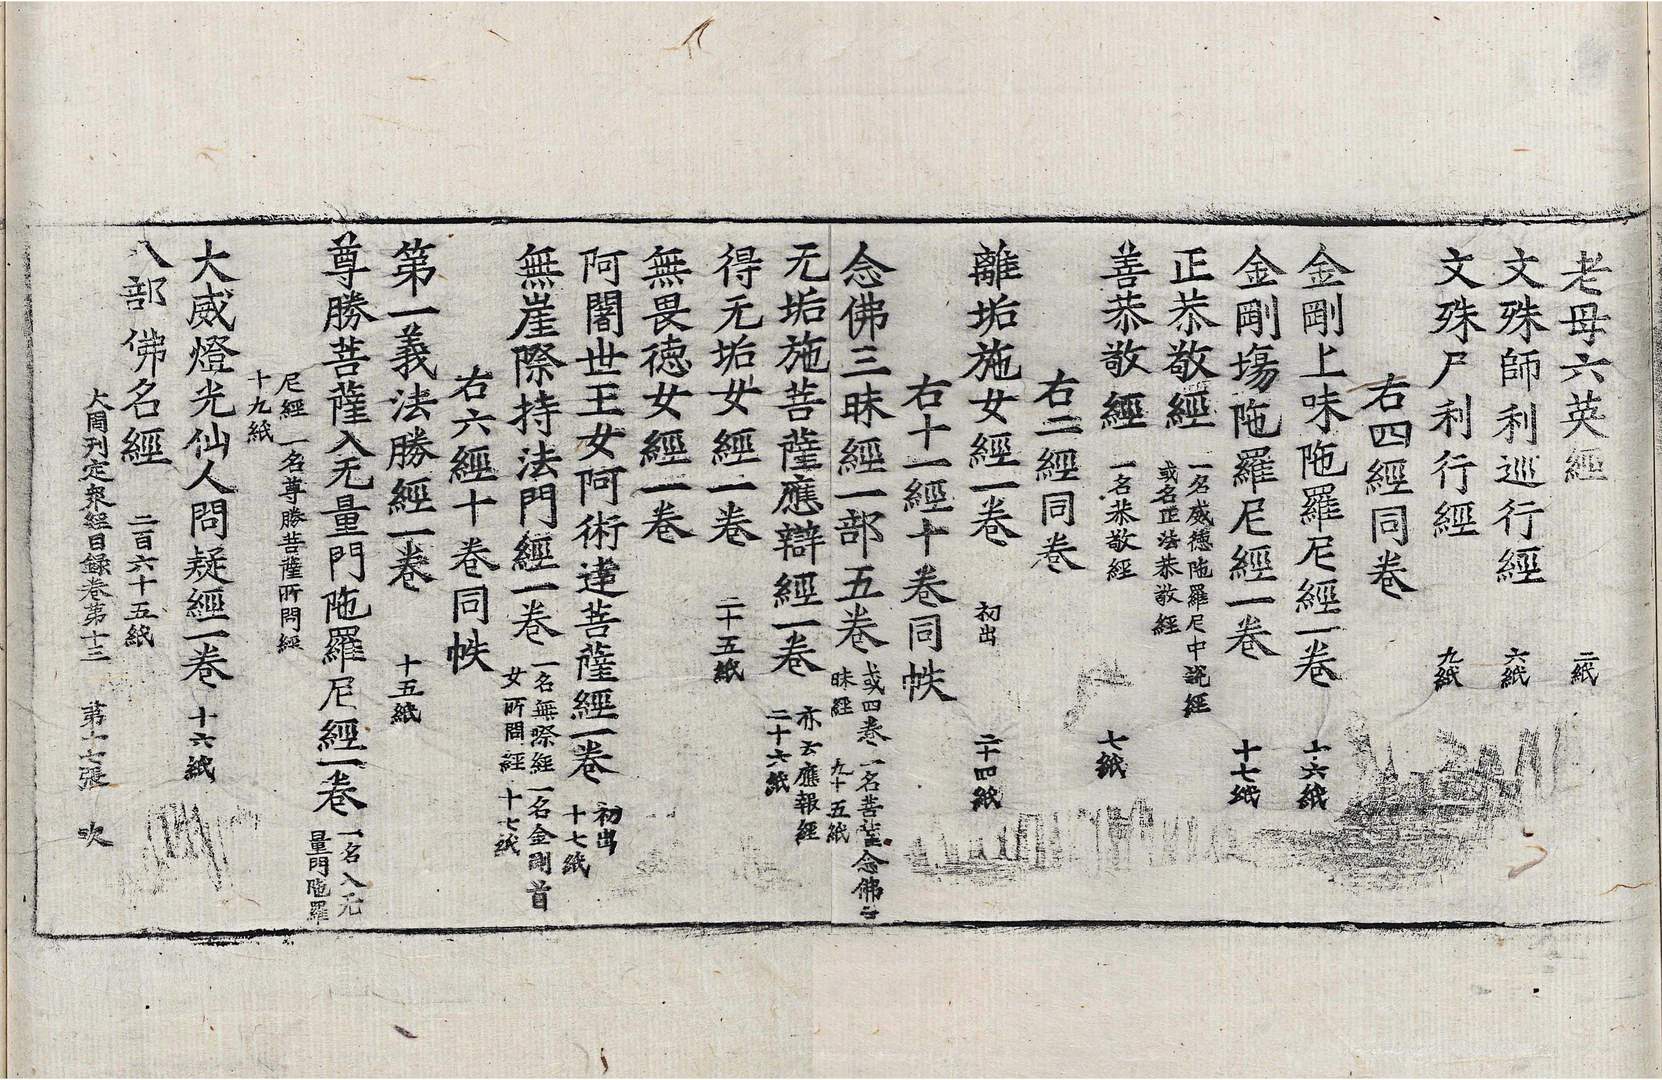 老母六英經 二紙
文殊師利巡行經 六紙
文殊尸利行經 九紙
右四經同卷
金剛上味陁羅尼經一卷 十六紙
金剛塲陁羅尼經一卷 十七紙
正恭敬經 一名威德陁羅尼中說經 或名正法恭敬經
善恭敬經 一名恭敬經 七紙
右二經同卷
離垢施女經一卷 初出 二十四紙
右十一經十卷同帙
念佛三昧經一部五卷 或四卷 一名菩薩念佛三昧經 九十五紙
无垢施菩薩應辯經一卷 亦云應報經 二十六紙
得无垢女經一卷 二十五紙
無畏德女經一卷
阿闍世王女阿術達菩薩經一卷 初出 十七紙
無崖際持法門經一卷 一名無際經 一名金剛首女所問經 十七紙
右六經十卷同帙
第一義法勝經一卷 十五紙
尊勝菩薩入无量門陁羅尼經一卷 一名入无量門陁羅
尼經 一名尊勝菩薩所問經 十九紙
大威燈光仙人問疑經一卷 十六紙
八部佛名經 二百六十五紙
大周刊定衆經目錄卷第十三 第十七張 吹